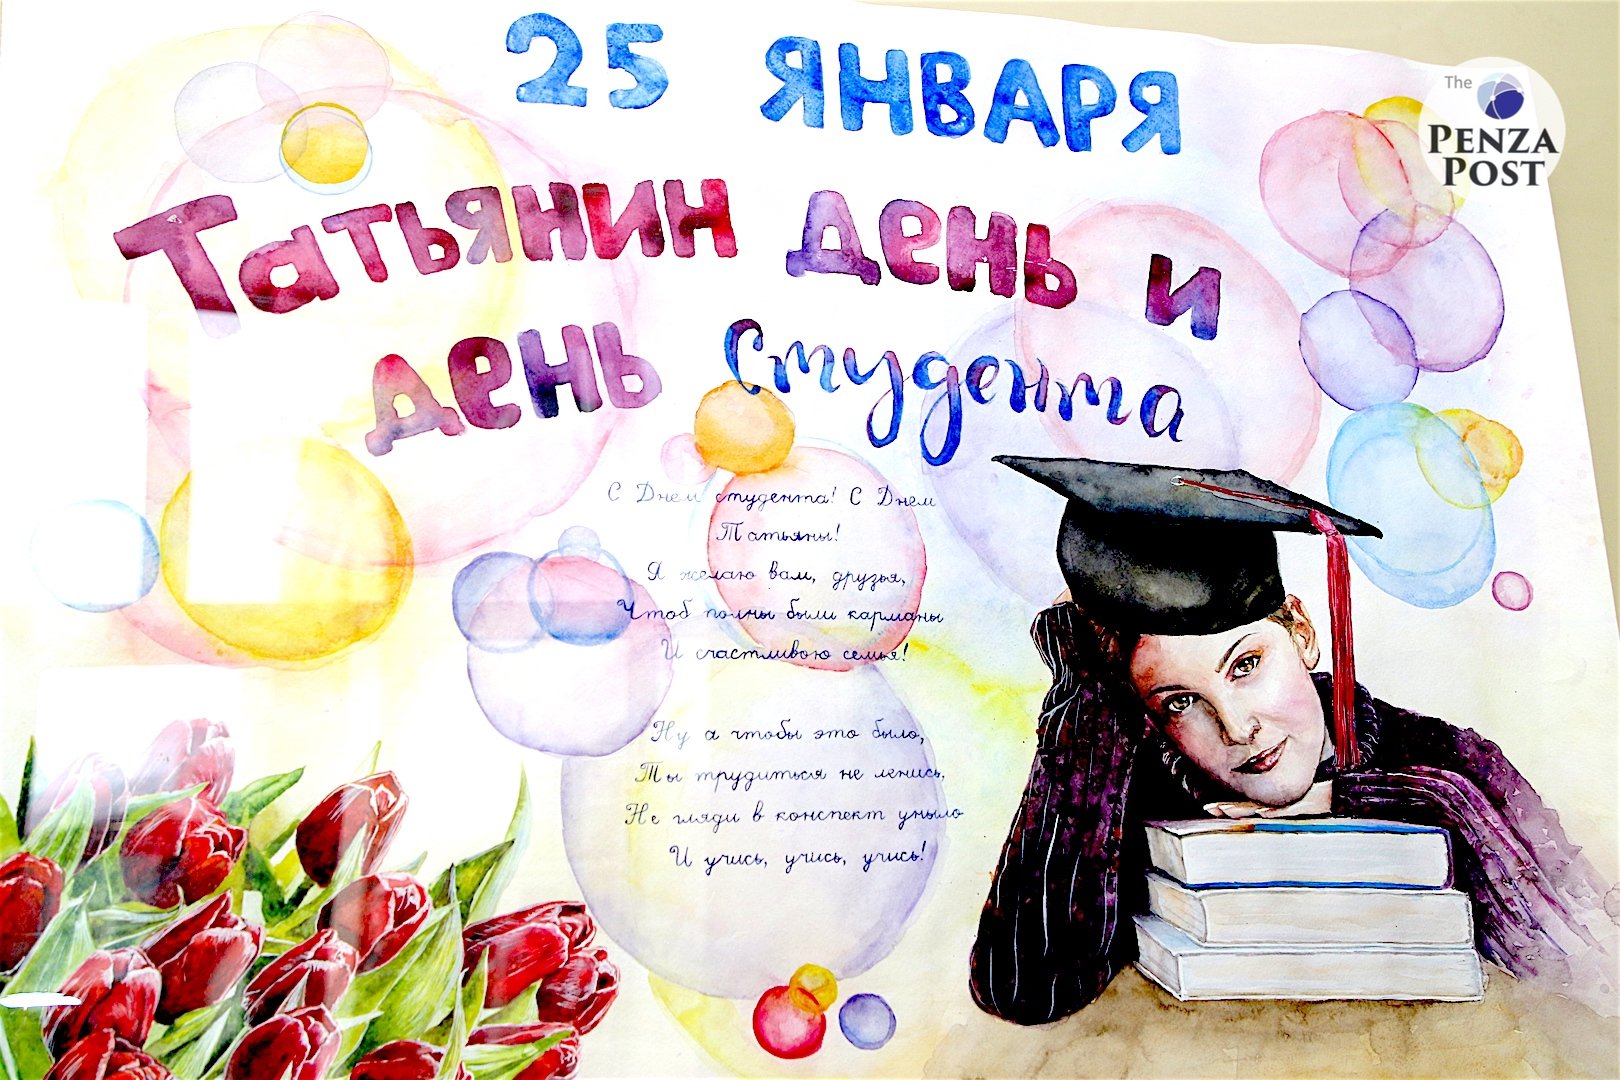 25 ЯНВАРЯ
The
PENZA
POST
Татьянин день и
день студента
С Днем студента! С Днем
Татьяны!
Я желаю вам, друзья,
Чтоб полны были карманы
И счастливою семья!
Ну а чтобы это было,
Ты трудиться не ленись,
Не гляди в конспект уныло
И учись, учись, учись!